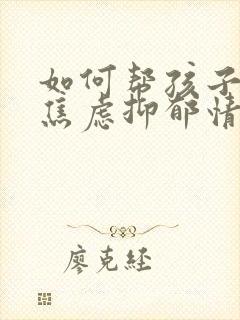 如何帮孩子
焦虑抑郁情
廖克经